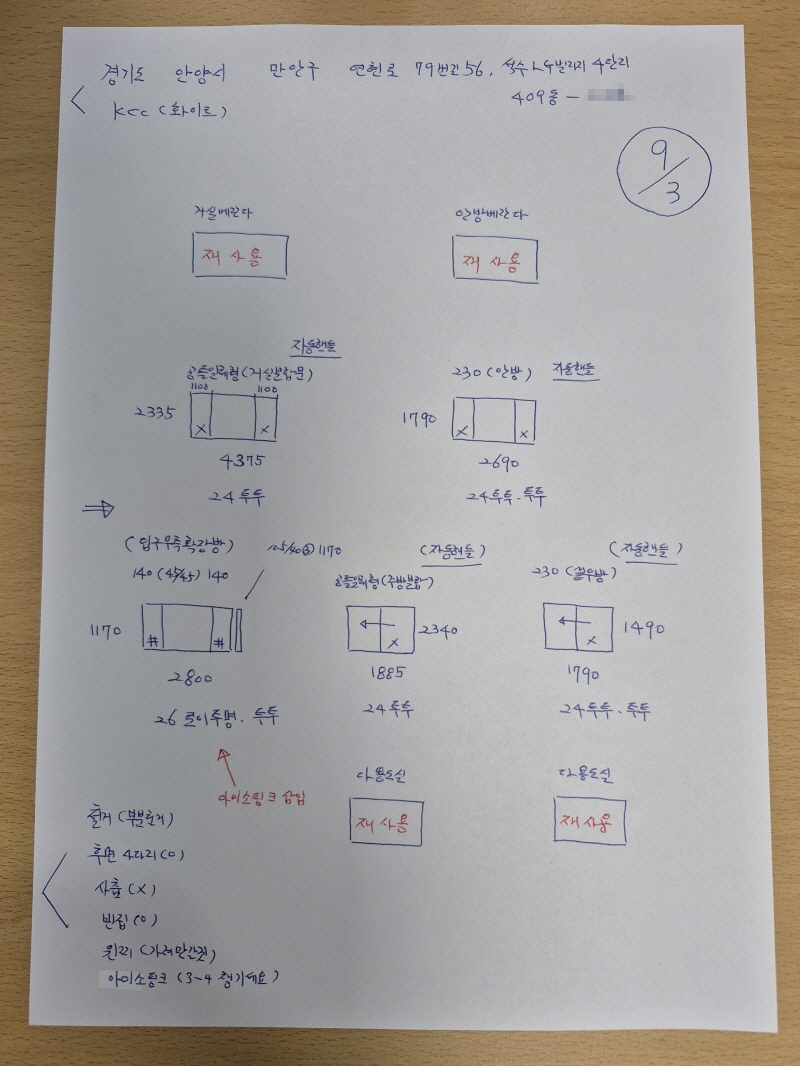 경기도 안양시 만안구 연현로 79번길 56, 석수 LG빌리지 4단지
409동 -
KCC (화이트)
9/3
거실베란다
재 사용
안방베란다
재 사용
자동핸들
공틀일체형(거실분합문)
1100 1100
2335
X X
4375
24 투투
230 (안방) 자동핸들
1790
X X
2690
24 투투. 투투
(입구우측확장방)
140 (45/45) 140
105/40 1170
1170
# #
2800
26 로이투명. 투투
아이소핑크 삽입
(자동핸들)
공틀일체형(주방분합)
X
2340
1885
24 투투
(자동핸들)
230 (끝우방)
X
1490
1790
24 투투. 투투
다용도실
재 사용
다용도실
재 사용
철거 (부분철거)
후면 사다리 (O)
사춤 (X)
빈집 (O)
아이소핑크 (3~4 챙기세요)